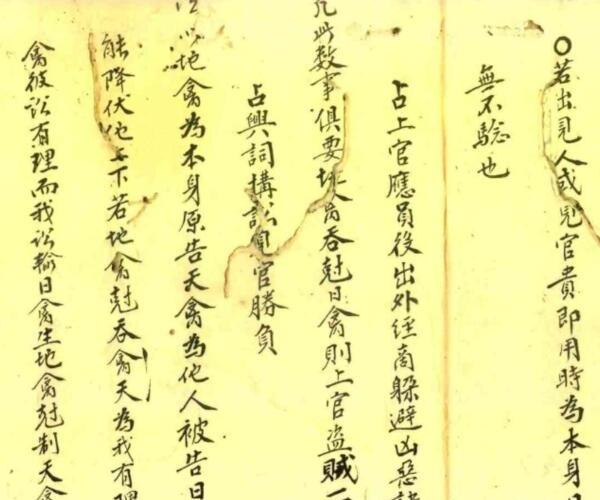 ○若出見人或見官貴即用時為本身日
無不驗也
占上官應員役出外經商躲避凶惡
凡此数事俱要地禽吞尅日禽則上官盗賊一
占興詞搆訟見官勝負
以地禽為本身原告天禽為他人被告日
能降伏他也下若地禽尅吞禽天為我有理
禽彼訟有理而我訟輸日禽生地禽尅制天禽